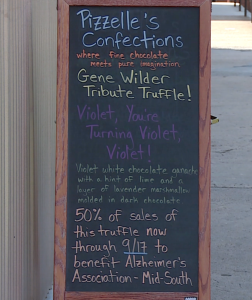 Pizzelle's
Confections
where fine chocolate
meets pure imagination
Gene Wilder
Tribute Truffle!
Violet, You're
Turning Violet,
Violet!
Violet white chocolate ganache
with a hint of lime and a
layer of lavender marshmallow
molded in dark chocolate
50% of sales of
this truffle now
through 9/17 to
benefit Alzheimer's
Association - Mid-South